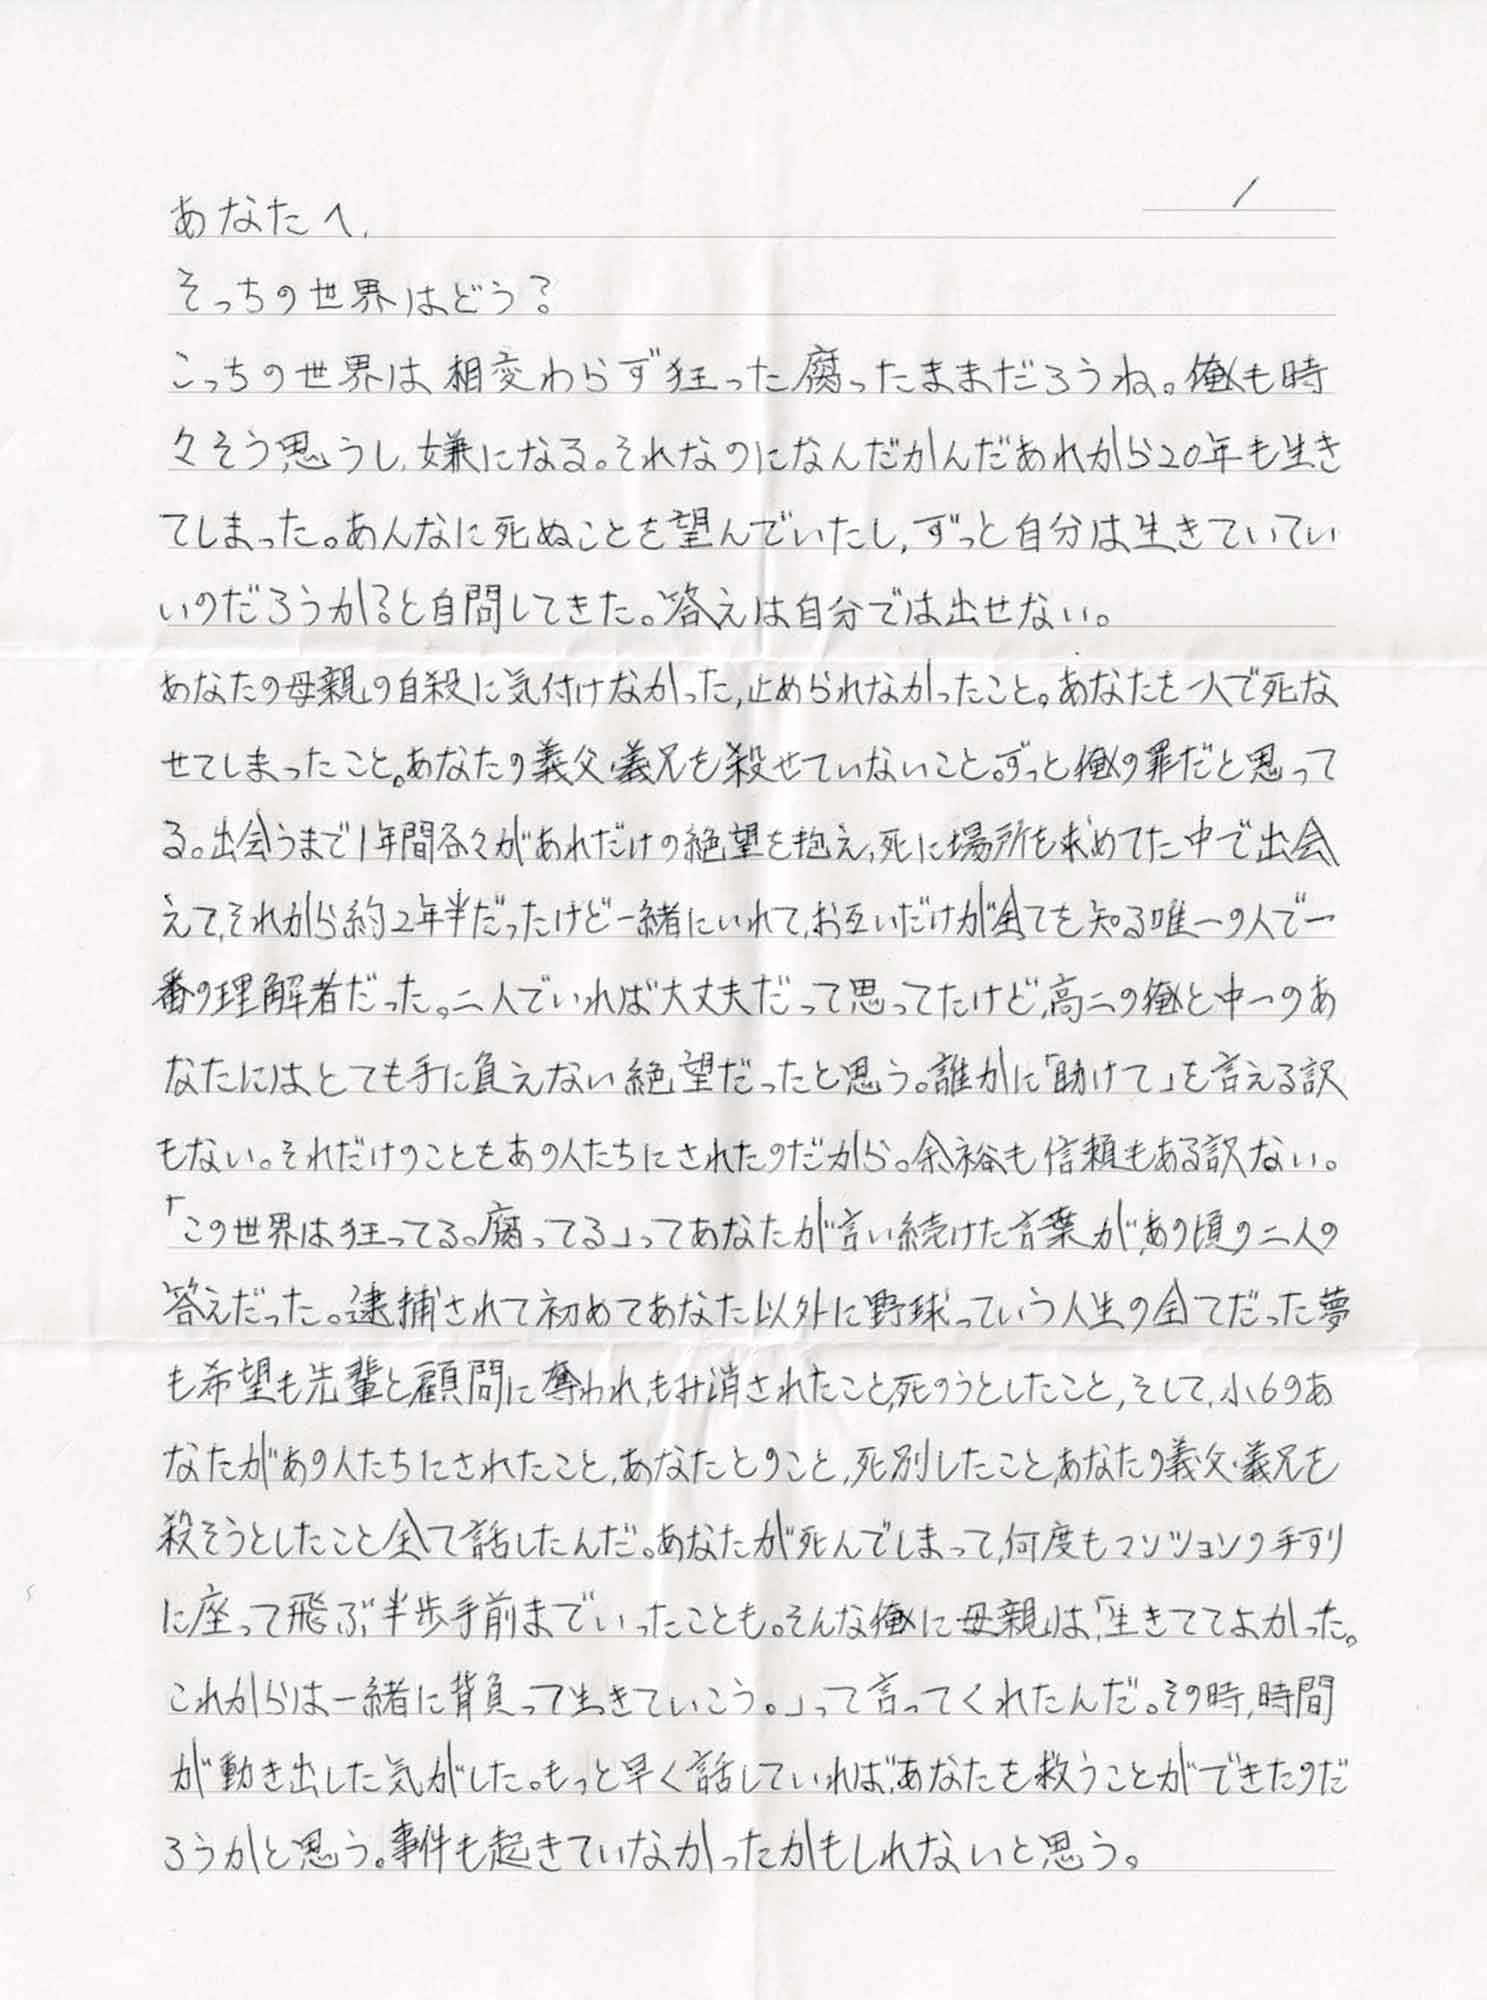 1
あなたへ、
そっちの世界はどう?
こっちの世界は、相変わらず狂った腐ったままだろうね。俺も時
々そう思うし、嫌になる。それなのになんだかんだあれから20年も生き
てしまった。あんなに死ぬことを望んでいたし、ずっと自分は生きていてい
いのだろうか?と自問してきた。答えは自分では出せない。
あなたの母親の自殺に気付けなかった、止められなかったこと。あなたを一人で死な
せてしまったこと。あなたの義父・義兄を殺せていないこと。ずっと俺の罪だと思って
る。出会うまで1年間各々があれだけの絶望を抱え、死に場所を求めてた中で出会
えて、それから約2年半だったけど一緒にいれて、お互いだけが全てを知る唯一の人で一
番の理解者だった。二人でいれば大丈夫だって思ってたけど、高二の俺と中一のあ
なたにはとても手に負えない絶望だったと思う。誰かに「助けて」を言える訳
もない。それだけのことをあの人たちにされたのだから。余裕も信頼もある訳ない。
「この世界は狂ってる。腐ってる」ってあなたが言い続けた言葉が、あの頃の二人の
答えだった。逮捕されて初めてあなた以外に野球っていう人生の全てだった夢
も希望も先輩と顧問に奪われ、もみ消されたこと、死のうとしたこと、そして、小6のあ
なたがあの人たちにされたこと、あなたとのこと、死別したこと、あなたの義父・義兄を
殺そうとしたこと全て話したんだ。あなたが死んでしまって、何度もマンションの手すり
に座って飛ぶ半歩手前までいったことも。そんな俺に母親は、「生きててよかった。
これからは一緒に背負って生きていこう。」って言ってくれたんだ。その時、時間
が動き出した気がした。もっと早く話していれば、あなたを救うことができたのだ
ろうかと思う。事件も起きていなかったかもしれないと思う。